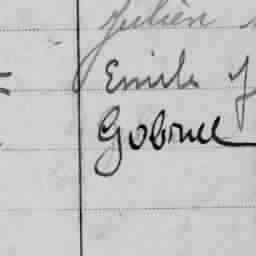 Julien
Emile
Gabriel